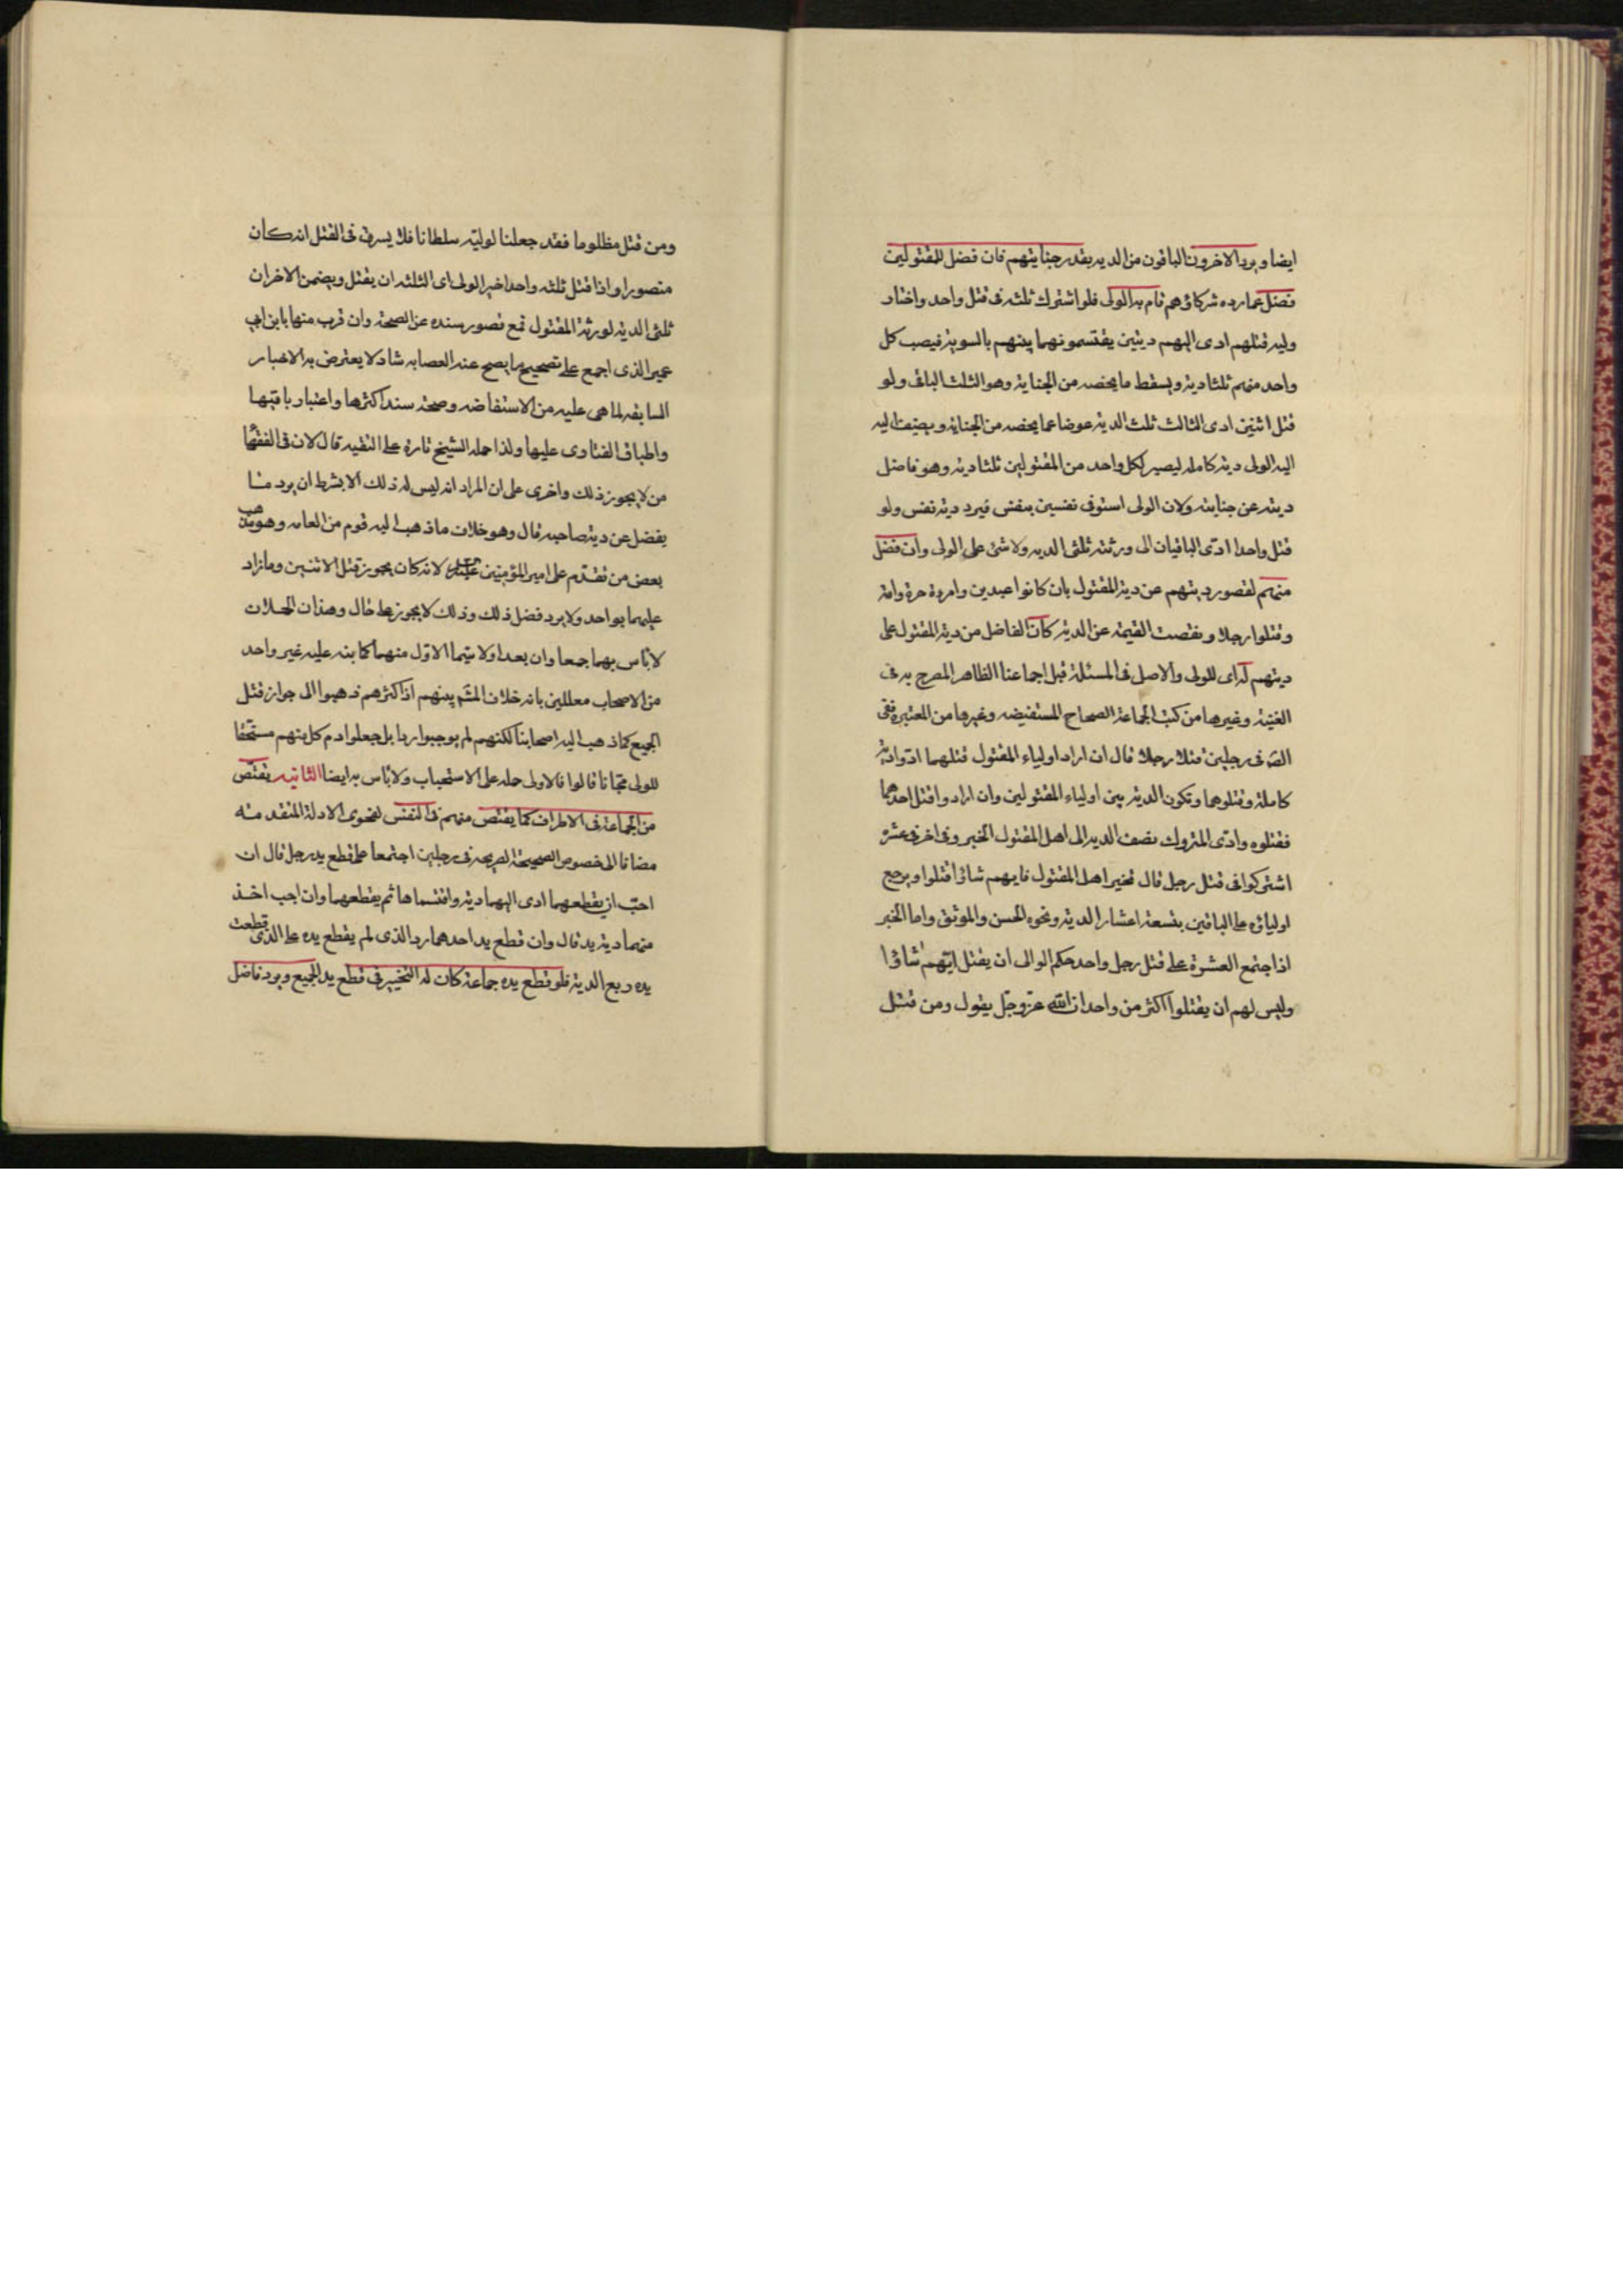 ايضا ويرد الاخرون الباقون من الديه بقدر جنايتهم فان فضل للمقتولين
فضل عما رده شركاؤهم قام به الولى فلو اشترك ثلثه فى قتل واحد واختار
وليه قتلهم ادى اليهم ديتين يقتسمونهما بينهم بالسويه فيصب كل
واحد منهم ثلثا ديه ويسقط ما يخصه من الجنايه وهو الثلث الباقى ولو
قتل اثنين ادى الثالث ثلث الديه عوضا عما يخصه من الجنايه ويضيف اليه
اليه الولى ديه كامله ليصير لكل واحد من المقتولين ثلثا ديه وهو فاضل
ديته عن جنايته ولان الولى استوفى نفسين بنفس فيرد ديه نفس ولو
قتل واحدا ادى الباقيان الى ورثته ثلثى الديه ولا شئ على الولى وان فضل
منهم لقصور ديتهم عن دية المقتول بان كانوا عبدين وامرءة حرة وامة
وقتلوا رجلا ونقصت القيمه عن الديه كان الفاضل من دية المقتول على
ديتهم له اى للولى والاصل فى المسئلة قبل اجماعنا الظاهر المصرح به فى
الغنيه وغيرها من كتب الجماعة الصحاح المستفيضه وغيرها من المعتبره ففى
الصّ فى رجلين قتلا رجلا قال ان اراد اولياء المقتول قتلهما ادّوا دية
كاملة وقتلوها وتكون الديه بين اولياء المقتولين وان ارادوا قتل احدهما
فقتلوه وادّى المتروك نصف الديه الى اهل المقتول الخبر وفى اخر فى عشره
اشتركوا فى قتل رجل قال تخير اهل المقتول فايهم شاؤا قتلوا ويرجع
اولياؤه على الباقين بتسعة اعشار الديه ونحوه الحسن والموثق واما الخبر
اذا اجتمع العشرة على قتل رجل واحد حكم الوالى ان يقتل ايّهم شاؤا
وليس لهم ان يقتلوا اكثر من واحد ان الله عزّ وجلّ يقول ومن قتل
ومن قتل مظلوما فقد جعلنا لوليّه سلطانا فلا يسرف فى القتل انه كان
منصورا واذا قتل ثلثه واحدا خير الولى اى الثلثه ان يقتل ويضمن الاخران
ثلثى الديه لورثة المقتول فمع قصور سنده عن الصحة وان قرب منها بابن ابى
عمير الذى اجمع على تصحيح ما يصح عنه العصابه شاذ لا يعترض به الاخبار
السابقه لما هى عليه من الاستفاضه وصحة سند اكثرها واعتبار باقيها
واطباق الفتاوى عليها ولذا حمله الشيخ تارة على التقيه قال لان فى الفقهاء
من لا يجوز ذلك واخرى على ان المراد انه ليس له ذلك الا بشرط ان يرد ما
يفضل عن دية صاحبه قال وهو خلاف ما ذهب اليه قوم من العامه وهو مذهب
بعض من تقدّم على امير المؤمنين لانه كان يجوز قتل الاثنين وما زاد
عليهما بواحد ولا يرد فضل ذلك وذلك لا يجوز على حال وهذان الحملان
لا بأس بهما جمعا وان بعدا ولا سيّما الاوّل منهما كما نبه عليه غير واحد
من الاصحاب معللين بانه خلاف المشَ بينهم اذ اكثرهم ذهبوا الى جواز قتل
الجميع كما ذهب اليه اصحابنا لكنهم لم يوجبوا ردا بل جعلوا دم كل منهم مستحقا
للولى مجّانا قالوا فالاولى حمله على الاستحباب ولا بأس به ايضا الثانيه يقتصّ
من الجماعة فى الاطراف كما يقتص منهم فى النفس لفحوى الادلة المتقدمة
مضافا الى خصوص الصحيحة الصريحه فى رجلين اجتمعا على قطع يد رجل قال ان
احبّ ان يقطعهما ادى اليهما ديه واقتسماها ثم يقطعهما وان احب اخذ
منهما دية يد قال وان قطع يد احدهما رد الذى لم يقطع يده على الذى قطعت
يده ربع الديه فلو قطع يده جماعة كان له التخيير فى قطع يد الجميع ويرد فاضل